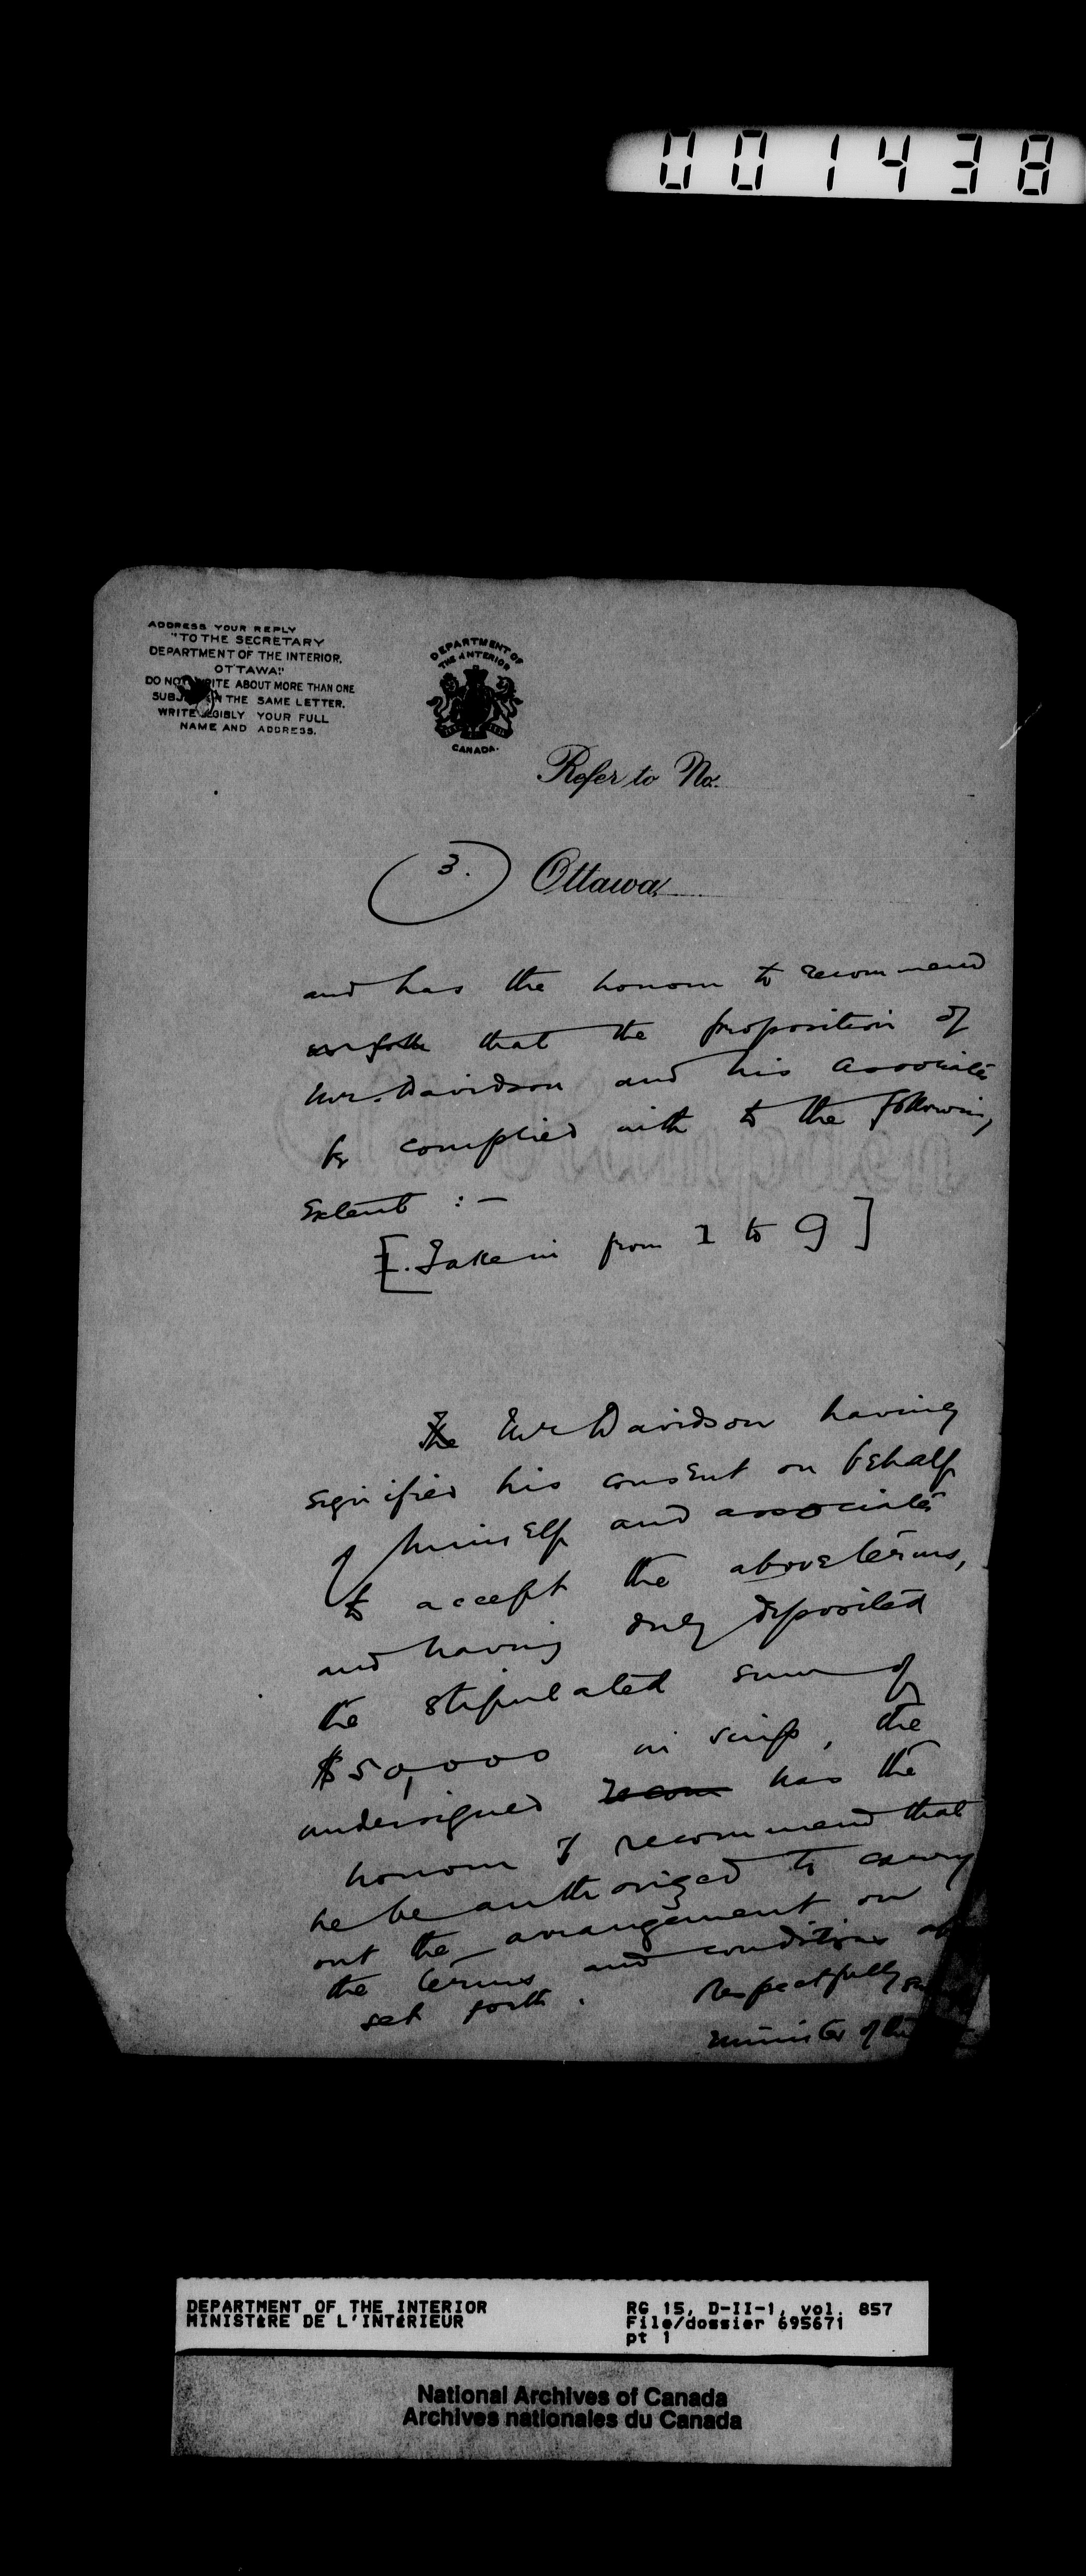 001438
ADDRESS YOUR REPLY
"TO THE SECRETARY
DEPARTMENT OF THE INTERIOR,
OTTAWA."
DO NOT WRITE ABOUT MORE THAN ONE
SUBJECT IN THE SAME LETTER.
WRITE LEGIBLY YOUR FULL
NAME AND ADDRESS.
DEPARTMENT OF
THE INTERIOR
CANADA.
Refer to No.
3. Ottawa,
and has the honour to recommend
that the proposition of
Mr. Davidson and his associates
be complied with to the following
extent : —
[. Take in from 1 to 9 ]
The Mr Davidson having
signified his consent on behalf
of himself and associates
to accept the above terms,
and having duly deposited
the stipulated sum of
$50,000 in scrip, the
undersigned recom has the
honour to recommend that
he be authorized to carry
out the arrangement on
the terms and conditions
set forth. Respectfully
Minister of
DEPARTMENT OF THE INTERIOR
MINISTÈRE DE L'INTÉRIEUR
RG 15, D-II-1, vol. 857
File/dossier 695671
pt 1
National Archives of Canada
Archives nationales du Canada